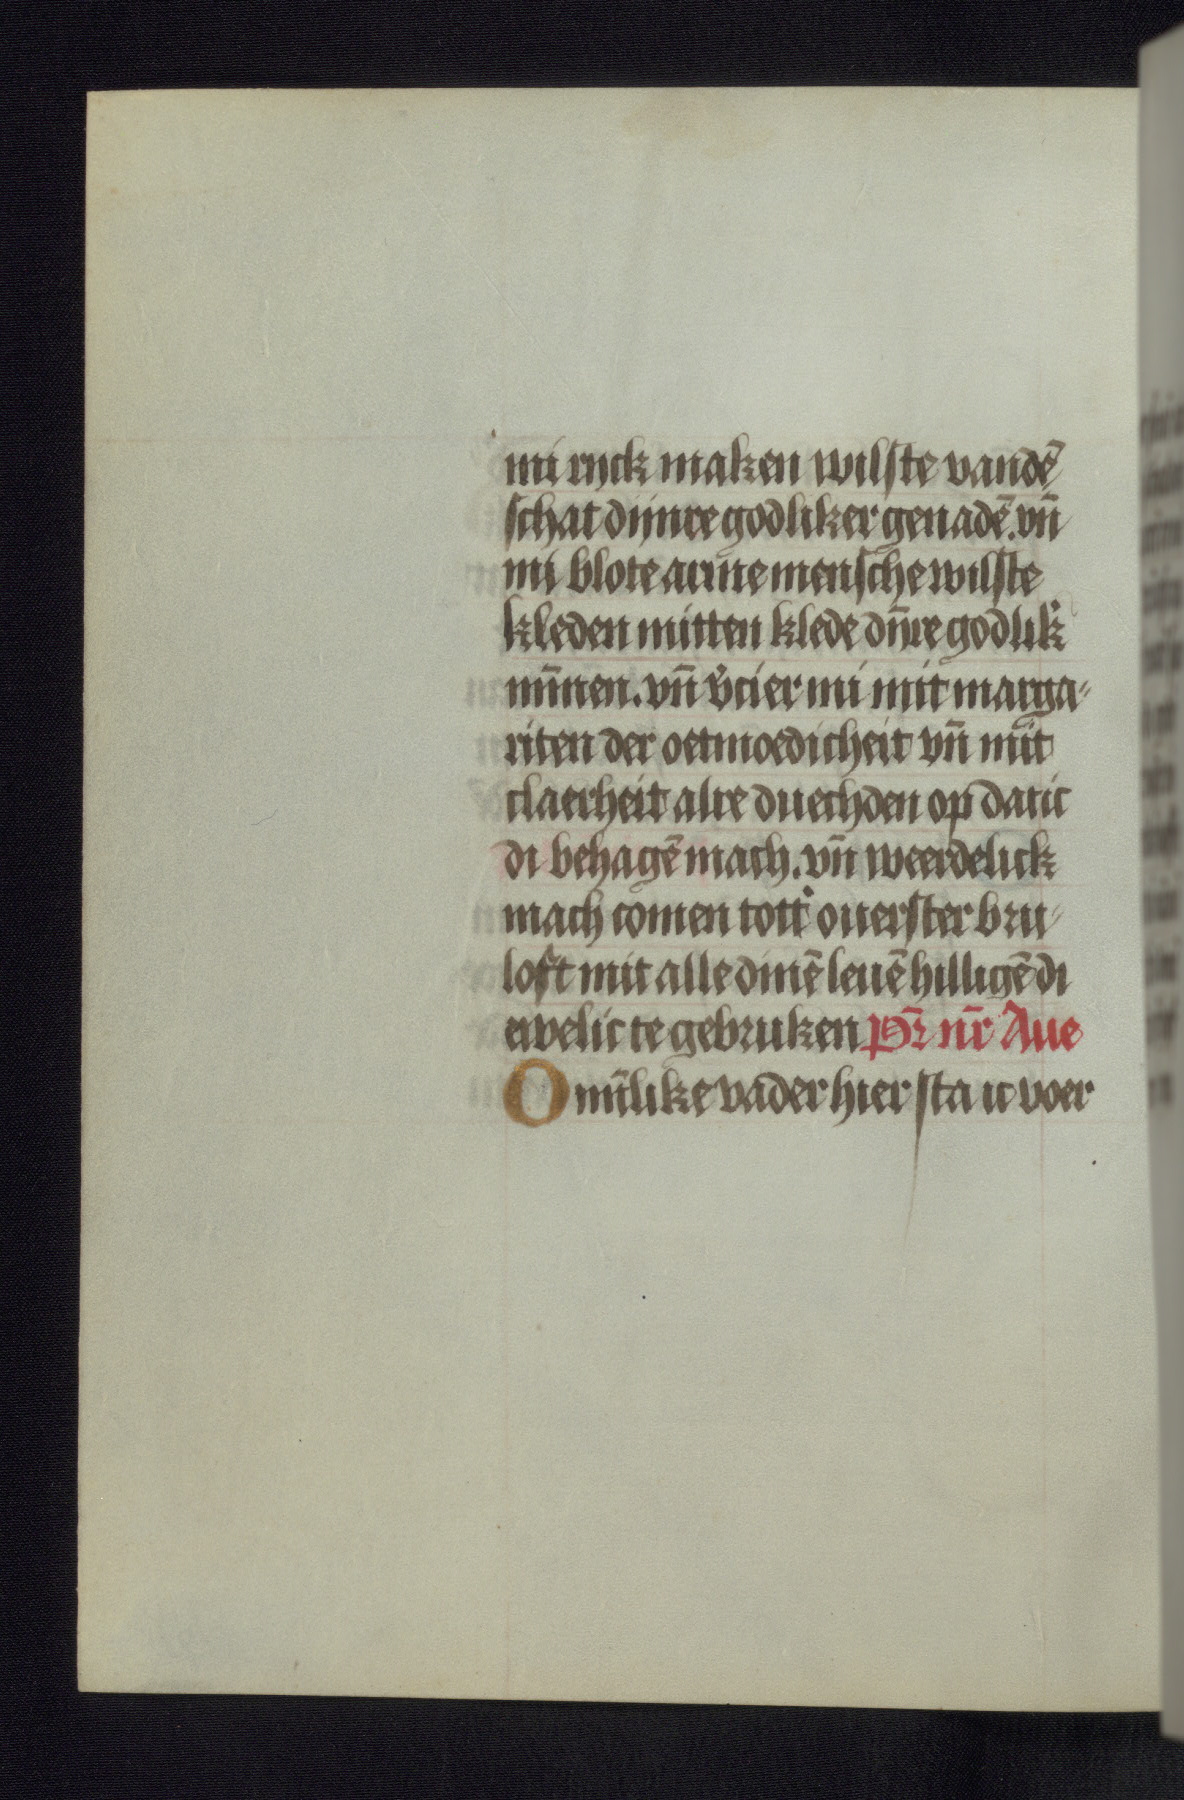 mi ryck maken wilste vandē
schat dijnre godliker genadē. vn̄
mi blote arme mensche wilste
kleden mitten klede dȳnre godlik̉
mīnen. vn̄ v̉cier mi mit marga⸗
riten der oetmoedicheit vn̄ mit
claerheit alre duechden op datic
di behagē mach. vn̄ weerdelick
mach comen tott̉ ouerster bru⸗
loft mit alle dinē leuē hilligē di
ewelic te gebruken Pr̄ nr̄ Aue
O mīlike vader hier sta ic voer